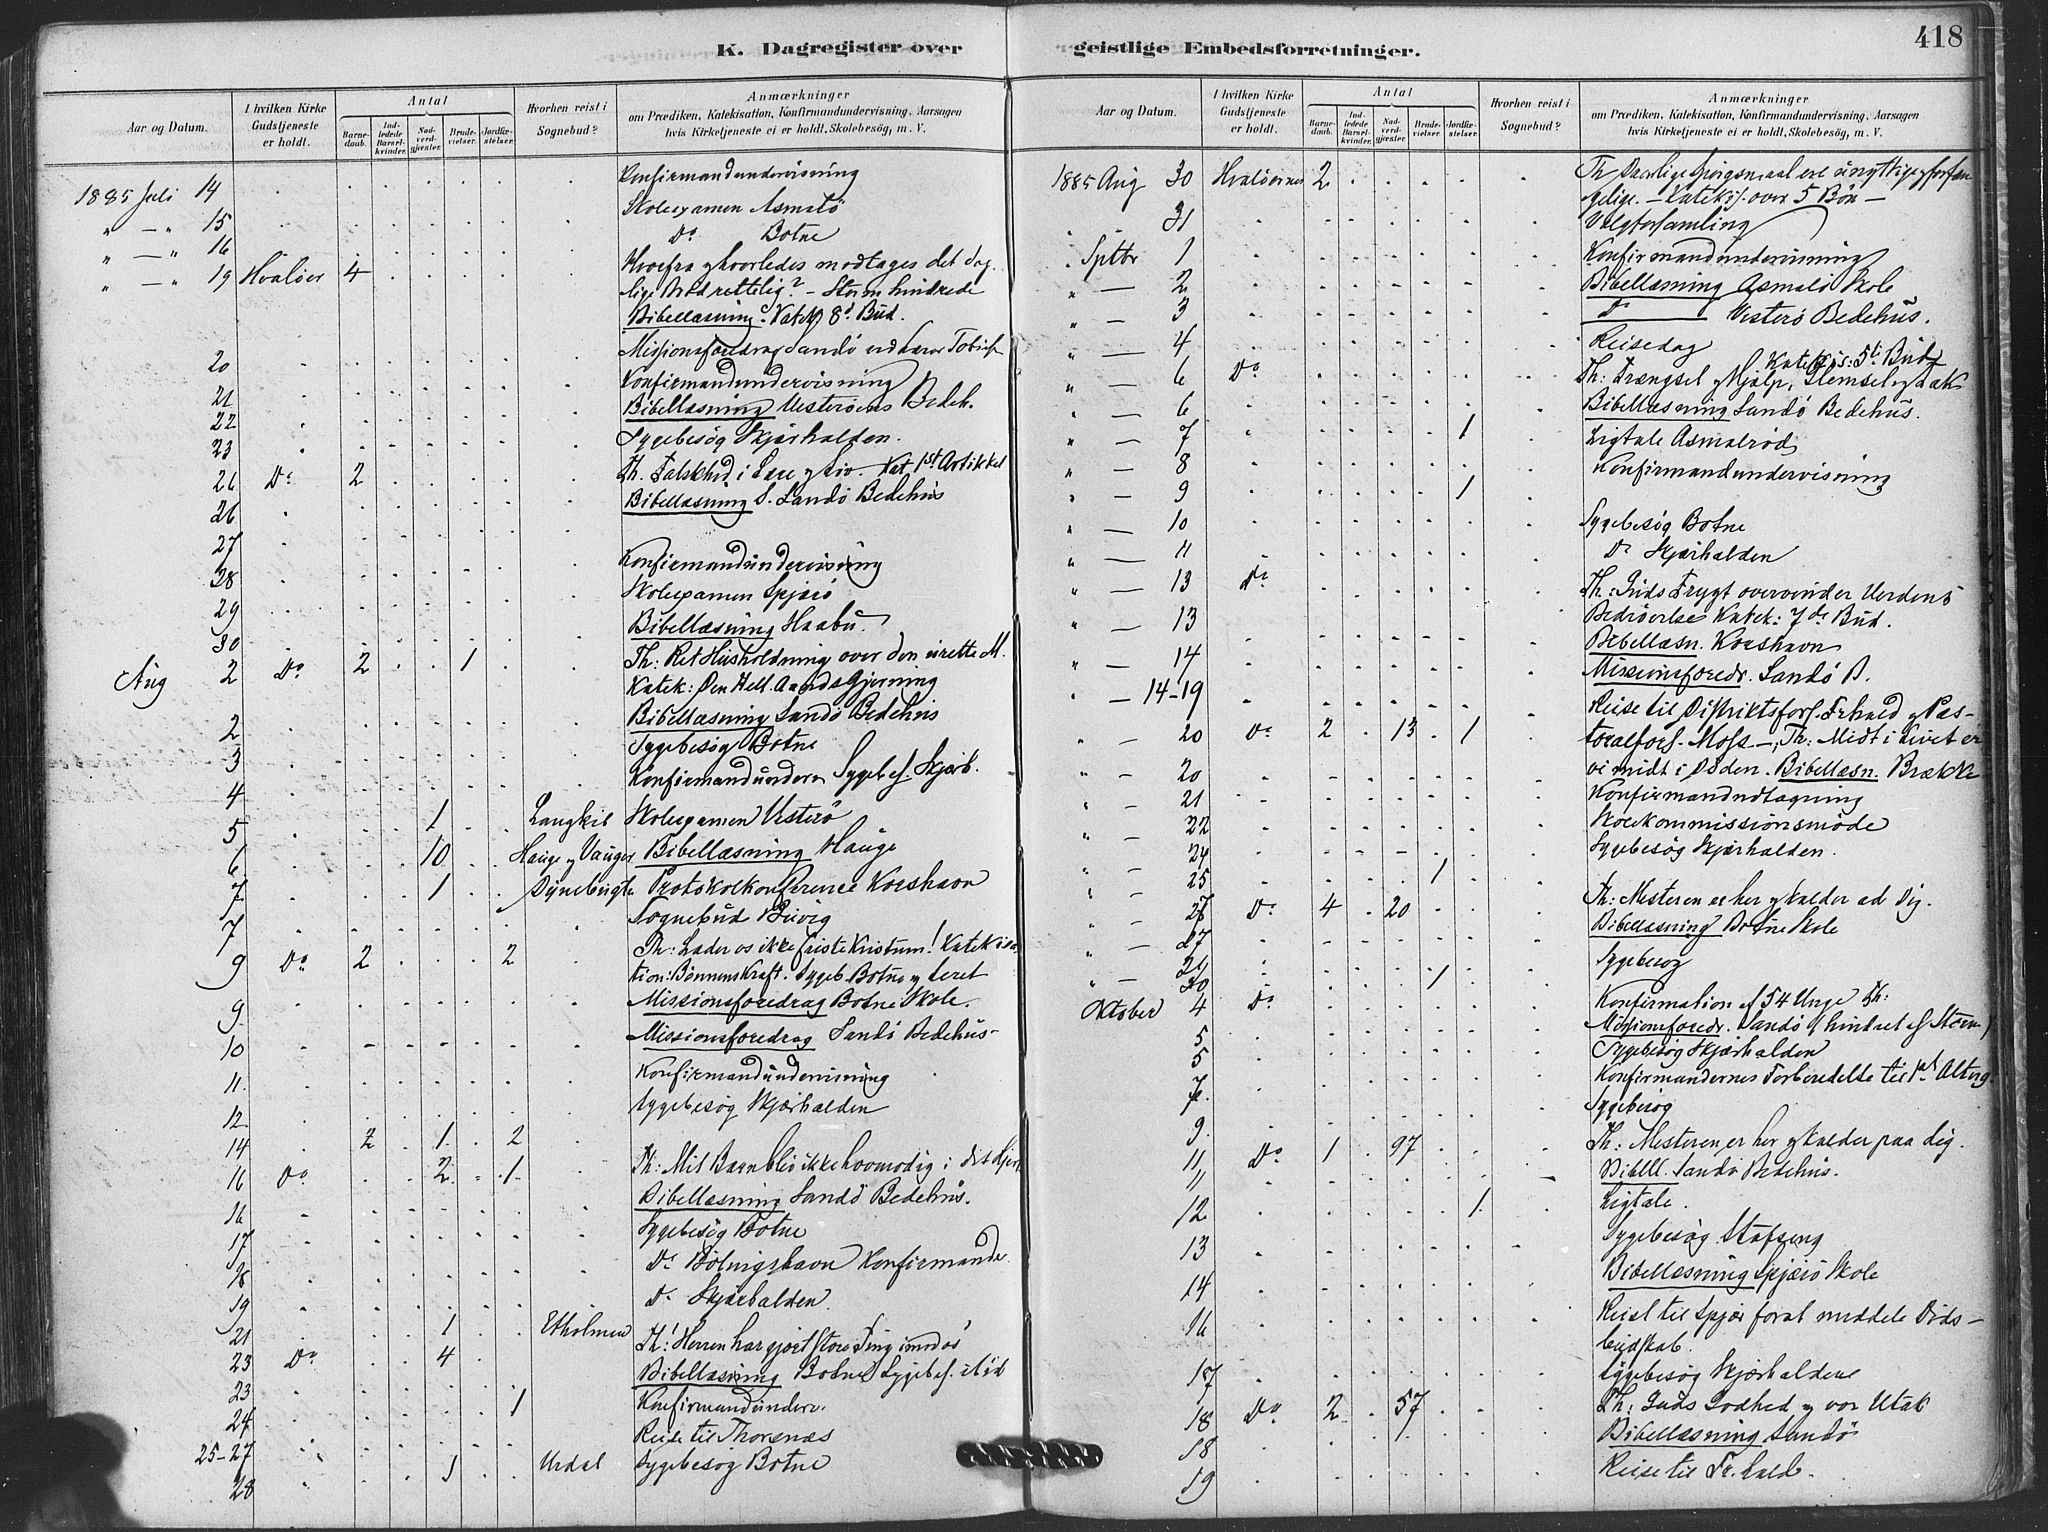 418
K. Dagregister over geistlige Embedsforretninger.
Aar og Datum. I hvilken Kirke Gudstjeneste er holdt. Antal Barnedaab. Indledede Barselkvinder. Nadverdgjæster. Brudevielser. Jordfæstelser. Hvorhen reist i Sognebud? Anmærkninger om Prædiken, Katekisation, Konfirmandundervisning, Aarsagen hvis Kirketjeneste ei er holdt, Skolebesøg, m. V.
1885 Juli 14 Konfirmandundervisning
" — " 15 Skoleexamen Asmalö
" — " 16 Do Botne
" — " 19 Hvaløer 4 Hvorfra og hvorledes modtages det dag-
lige Brød rettelig? – Storm hindrede
Bibellæsning. Katek 8d Bud.
20 Missionsforedrag Sandö
21 Konfirmandundervisning
22 Bibellæsning Vesterøens Bedeh.
23 Sygebesög Skjærhalden.
26 Do 2 Th. Falskhed i Lære og Liv. Kat. 1st Artikkel
26 Bibellæsning S. Sandö Bedehus
27
28 Konfirmandundervisning
29 Skoleexamen Spjærö
30 Bibellæsning Haabu.
Aug 2 Do 2 1 Th: Ret Husholdning over den urette M.
Katek: Den Hell. Aands Gjerning
2 Bibellæsning Sandö Bedehus
3 Sygebesög Botne
4 Konfirmandunderv Sygebes. Skjærh.
5 1 Langkil Skoleexamen Vesterö
6 10 Hauge og Vauger Bibellæsning Hauge
7 1 Dynebugte Protokolkonference Korshavn
7 Sognebud Buvig
9 Do 2 2 Th: Lader os ikke friste Kristum! Katekisa-
tion: Bønnens Kraft. Sygeb. Botne og Leret
9 Missionsforedrag Botne Skole.
10 Missionsforedrag Sandö Bedehus-
11. Konfirmandundervisning
12 Sygebesög Skjærhalden
14 2 1. 2
16 Do 2 1 Th: Mit Barn bliv ikke hovmodig i dit Hjerte
16 Bibellæsning Sandö Bedehus.
17 Sygebesög Botne
18 Do Bölingshavn Konfirmander
19 Do Skjærhalden.
21 1 Etholmen
23 Do 4 Th: Herren har gjort store Ting imod os
23 Bibellæsning Botne Sygebes.
24 1 Konfirmandunderv.
25-27 Reise til Thorsnæs
28 1 Urdal Sygebesög Botne
Aar og Datum. I hvilken Kirke Gudstjeneste er holdt. Antal Barnedaab. Indledede Barselkvinder. Nadverdgjæster. Brudevielser. Jordfæstelser. Hvorhen reist i Sognebud? Anmærkninger om Prædiken, Katekisation, Konfirmandundervisning, Aarsagen hvis Kirketjeneste ei er holdt, Skolebesøg, m. V.
1885 Aug 30 Hvaløerne 2 Th Daarlige Spörgsmaal ere unyttige og forfæn-
gelige. – Katekis. over 5 Bön –
31 Valgforsamling
Septbr 1 Konfirmandundervisning
" — 2 Bibellæsning Asmalö Skole
" — 3 Do Vesterö Bedehus.
" — 4 Reisedag
Katekis: 5te Bud
" — 6 Do Th: Trængsel og Hjælp,
" — 6 Bibellæsning Sandö Bedehus.
" — 7 1 Ligtale Asmalröd
" — 8 Konfirmandundervisning
" — 9 1
" — 10 Sygebesög Botne
" — 11 Do Skjærhalden
" — 13 Do Th: Guds Frygt overvinder Verdens
Bedrövelse Katek: 7de Bud.
" — 13 Bibellæsn. Korshavn
" — 14 Missionsforedr. Sandö B.
" — 14-19 Reise til Distriktsfors. Frhald og Pas-
" — 20 Do 2 13 1 toralfors. Moss –, Th: Midt i Livet er
20 vi midt i Döden. Bibellæsn. Brække
" — 21 Konfirmandudtagning
" — 22 Skolekommissionsmöde
" — 24 Sygebesög Skjærhalden.
" — 25 1
" — 27 Do 4 20 Th: Mesteren er her og kalder ad Dig.
" — 27 Bibellæsning Botne Skole
Sygebesög
" — 30 1
Oktober 4 Do Konfirmation af 54 Unge Th:
5 Missionsforedr. Sandö (hindret af Storm)
5 Sygebesög Skjærhalden
7 Konfirmandernes Forberedelse til 1st Alterg.
9. Sygebesög
11 Do 1 97 Th: Mesteren er her og kalder paa dig.
11 Bibell. Sandö Bedehus.
12 1. Ligtale.
13 Sygebesög Stafseng
14 Bibellæsning Spjærö Skole
16 Reise til Spjær forat meddele Döds-
budskab.
17 Sygebesög Skjærhaldene
18 Do 2 57 Th: Guds Godhed og vor Utak
18 Bibellæsning Sandö
19 Reise til Fr.hald.